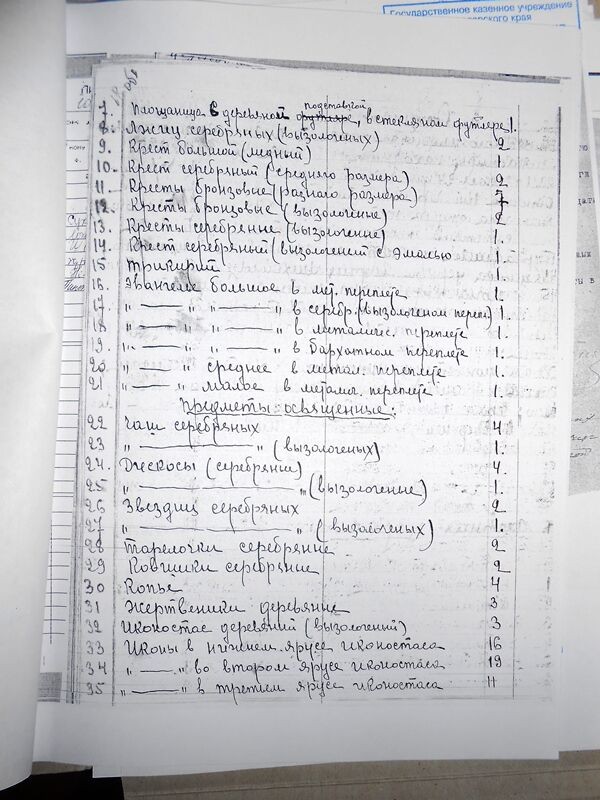 Государственное казенное учреждение
ского края
7. Площаница в деревяной подставкой, в стеклянном футляре 1.
8. Лжиц серебряных (вызологеных) 2
9. Крест большой (медный) 1.
10. Крест серебряный (среднего размера) 2
11. Кресты бронзовые (разнаго размера) 7
12. Кресты бронцовые (вызологеные) 2
13. Кресты серебряне (вызологенне) 1.
14. Крест серебряный (вызологений с эмалью 1.
15 Трикирий 1.
16. Эвангелие большое в мет. переплете 1.
17. " —— " " —— " в серебр. (вызологеном переп) 1.
18 " —— " " —— " в металичес. переплете 1.
19. " —— " " —— " в бархотном переплете 1.
20. " —— " среднее в метал. переплете 1.
21 " —— " малое в металич. переплете 1.
Предметы освященные:
22 Чаш серебряных 4
23 " —— " (вызологеных) 1.
24. Дискосы (серебряние) 4.
25 " —— " (вызологение) 1.
26 Звездиц серебряных 2
27 " —— " (вызологеных) 1.
28 Тарелочки серебрянне 2
29 Ковшики серебрянне 2
30 Копье 4
31 Жертвеники деревянне 3
32 Иконостас деревяний (вызологений) 3
33 Иконы в нижнем ярусе иконостаса 16
34 " —— " во втором ярусе иконостаса 19
35 " —— " в третьем ярусе иконостаса 11